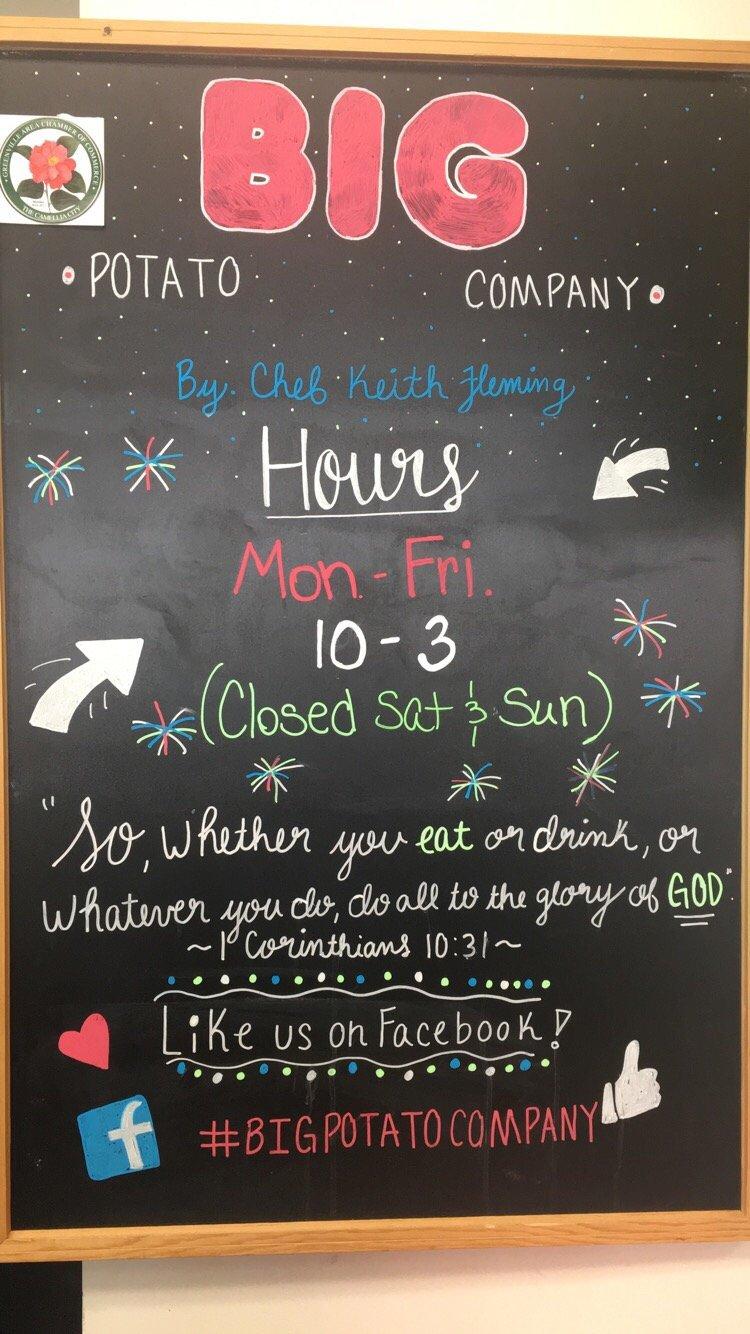 BIG
POTATO COMPANY
GREENVILLE AREA CHAMBER OF COMMERCE
THE CAMELLIA CITY
By. Chef Keith Fleming
Hours
Mon.-Fri.
10-3
(Closed Sat & Sun)
"So, whether you eat or drink, or
whatever you do, do all to the glory of GOD".
~1 Corinthians 10:31~
Like us on Facebook!
f
#BIGPOTATOCOMPANY